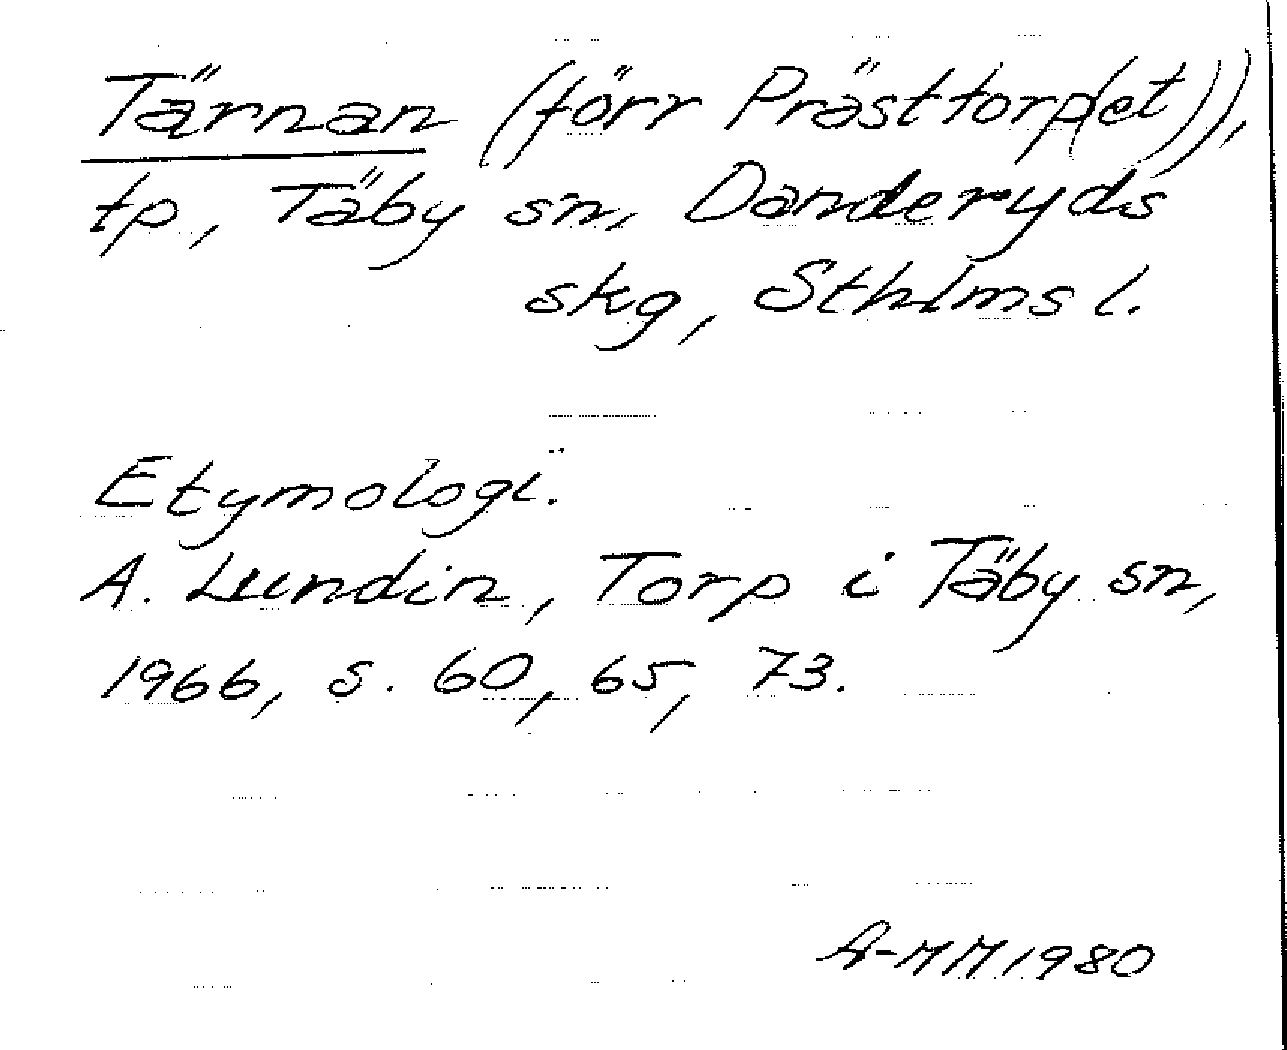 Tärnan (förr Prästtorp(et)),
tp, Täby sn, Danderyds
skg, Sthlms l.
Etymologi.
A. Lundin, Torp i Täby sn,
1966, s. 60, 65, 73.
A-MM 1980